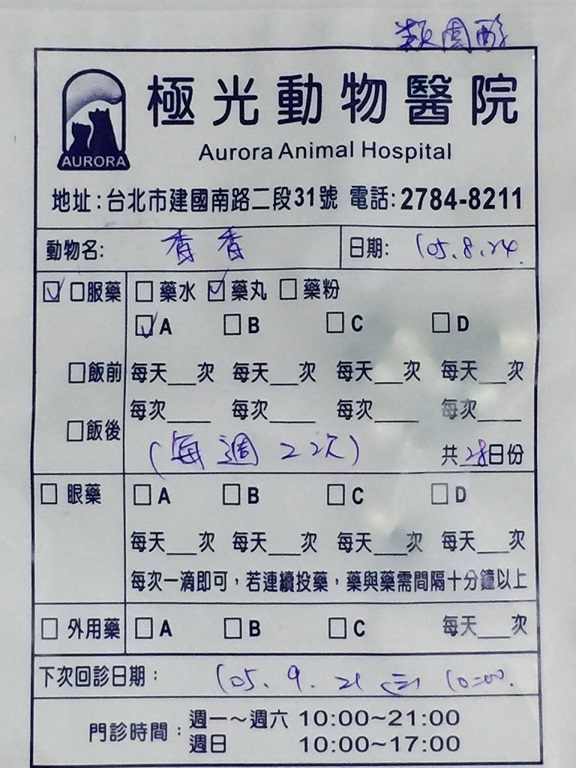 類固醇
極光動物醫院
AURORA
Aurora Animal Hospital
地址:台北市建國南路二段31號 電話:2784-8211
動物名: 香香 日期: 105.8.24.
☑口服藥 □藥水 ☑藥丸 □藥粉
☑A □B □C □D
□飯前 每天__次 每天__次 每天__次 每天__次
每次____ 每次____ 每次____ 每次____
□飯後
(每週2次) 共28日份
□ 眼藥 □A □B □C □D
每天__次 每天__次 每天__次 每天__次
每次一滴即可,若連續投藥,藥與藥需間隔十分鐘以上
□ 外用藥 □A □B □C 每天__次
下次回診日期: 105.9.21 (三) 10:00.
門診時間: 週一~週六 10:00~21:00
週日 10:00~17:00